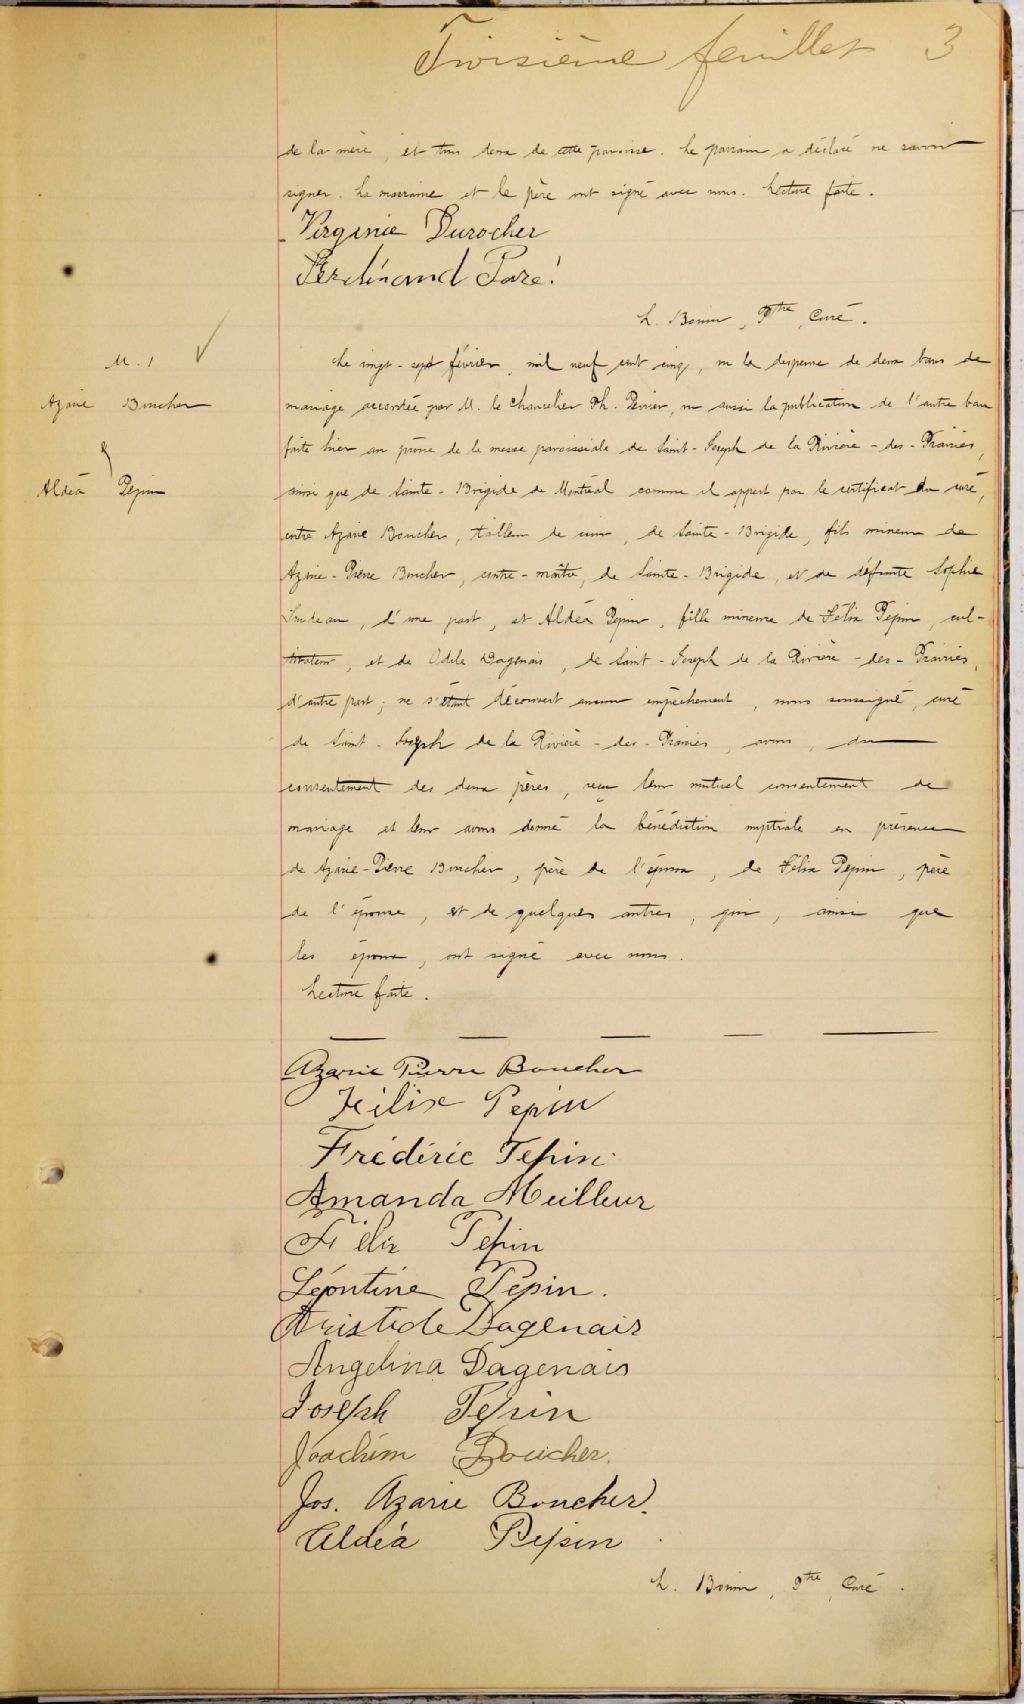 Troisième feuillet 3
de la mère, et tous deux de cette paroisse. Le parrain a déclaré ne savoir
signer. La marraine et le père ont signé avec nous. Lecture faite.
Virginie Durocher
Ferdinand Paré
L. Bonin, Ptre, Curé.
M. 1
Azarie Boucher
&
Aldéa Pepin
Le vingt-sept février, mil neuf cent cinq, vu la dispense de deux bans de
mariage accordée par M. le Chancelier Ph. Perrier, vu aussi la publication de l'autre ban
faite hier au prône de la messe paroissiale de Saint-Joseph de la Rivière-des-Prairies,
ainsi que de Sainte-Brigide de Montréal comme il appert par le certificat du curé,
entre Azarie Boucher, tailleur de cuir, de Sainte-Brigide, fils mineur de
Azarie-Pierre Boucher, contre-maître, de Sainte-Brigide, et de défunte Sophie
d'une part, et Aldéa Pepin, fille mineure de Félix Pepin, cul-
tivateur, et de Odile Dagenais, de Saint-Joseph de la Rivière-des-Prairies,
d'autre part; ne s'étant découvert aucun empêchement, nous soussigné, curé
de Saint-Joseph de la Rivière-des-Prairies, avons, du
consentement des deux pères, reçu leur mutuel consentement de
mariage et leur avons donné la bénédiction nuptiale en présence
de Azarie-Pierre Boucher, père de l'époux, de Félix Pepin, père
de l'épouse, et de quelques autres, qui, ainsi que
les époux, ont signé avec nous.
Lecture faite.
Azarie Pierre Boucher
Félix Pepin
Frédéric Pepin
Amanda Meilleur
Félix Pepin
Léontine Pépin.
Aristide Dagenais
Angelina Dagenais
Joseph Pepin
Joachim Boucher.
Jos. Azarie Boucher.
Aldéa Pepin
L. Bonin, Ptre, Curé.